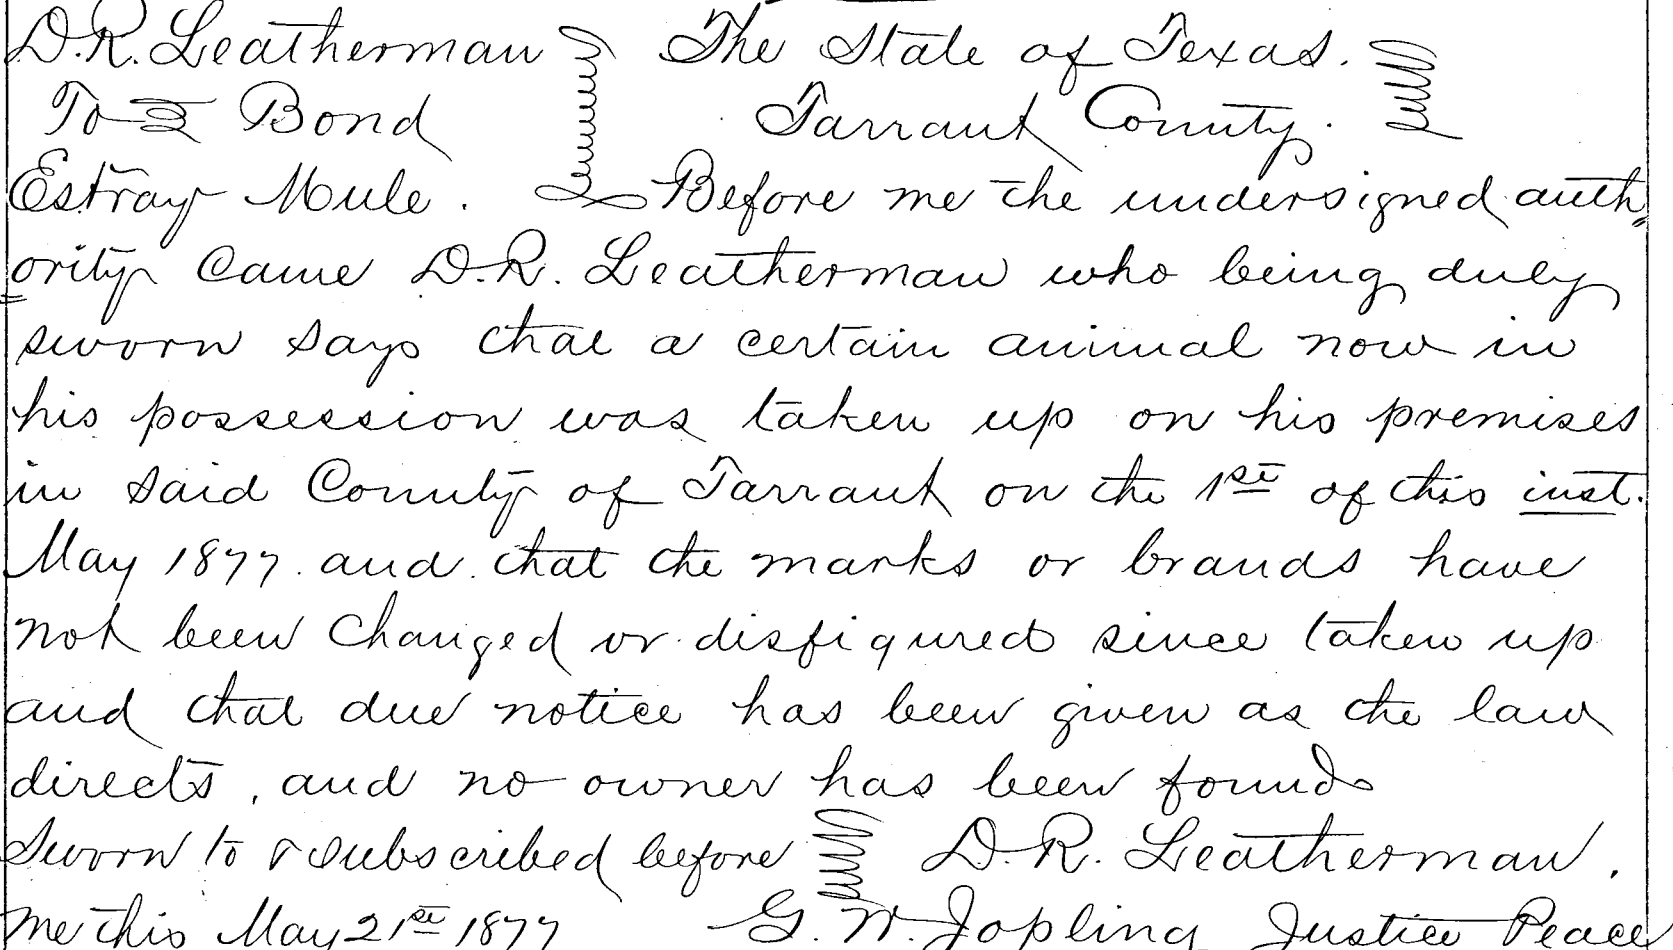 D.R. Leatherman The State of Texas.
To Bond Tarrant County.
Estray Mule. Before me the undersigned auth=
=ority came D.R. Leatherman who being duly
sworn says that a certain animal now in
his possession was taken up on his premises
in said County of Tarrant on the 1st of this inst.
May 1877. and that the marks or brands have
not been changed or disfigured since taken up
and that due notice has been given as the law
directs, and no owner has been found
Sworn to & subscribed before D.R. Leatherman.
me this May 21st 1877 G. W. Jopling Justice Peace